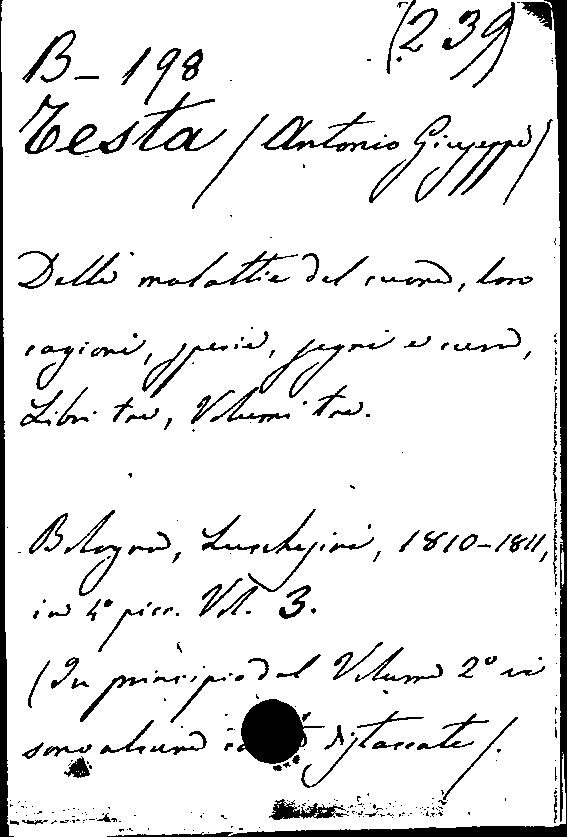 (239)
B- 198
Testa (Antonio Giuseppe)
Delle malattie del cuore, loro
cagioni, specie, segni e cura,
Libri tre, Volumi tre.
Bologna, Lucchesini, 1810-1811,
in 4° picc. Vol. 3.
(In principio del Volume 2° vi
sono alcune distaccate).